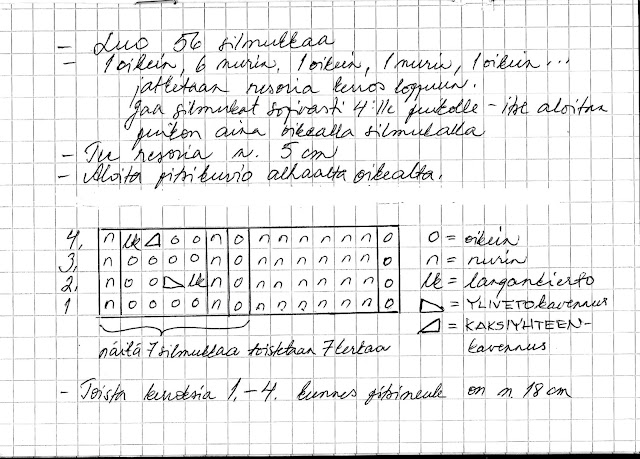 - Luo 56 silmukkaa
- 1 oikein, 6 nurin, 1 oikein, 1 nurin, 1 oikein...
jatketaan resoria kerros loppuun.
Jaa silmukat sopivasti 4:lle puikolle - itse aloitan
puikon aina oikealla silmukalla
- Tee resoria n. 5 cm
- Aloita pitsikuvio alhaalta oikealta.
4, n lk ◿ o o n o n n n n n n o
3, n o o o o n o n n n n n n o
2, n o o ◺ lk n o n n n n n n o
1 n o o o o n o n n n n n n o
o = oikein
n = nurin
lk = langankierto
◺ = YLIVETOkavennus
◿ = KAKSIYHTEEN-
kavennus
näitä 7 silmukkaa toistetaan 7 kertaa
- Toista kerroksia 1.-4. kunnes pitsineule on n. 18 cm